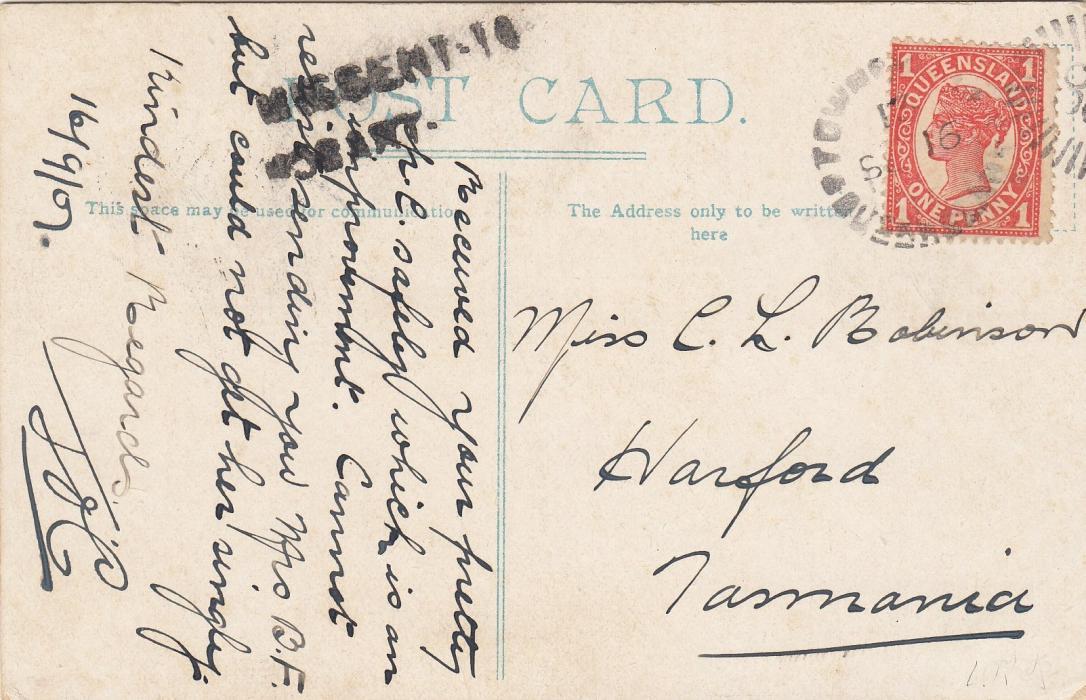 POST CARD.
This space may be used for communication
The Address only to be written
here
QUEENSLAND
ONE PENNY
1 1
1 1
16
MISSENT-TO
Received your pretty
P.C. safely which is an
improvement. Cannot
resist sending you Mrs B.F.
but could not get her singly.
Kindest Regards.
16/9/07.
Miss C. L. Robinson
Harford
Tasmania